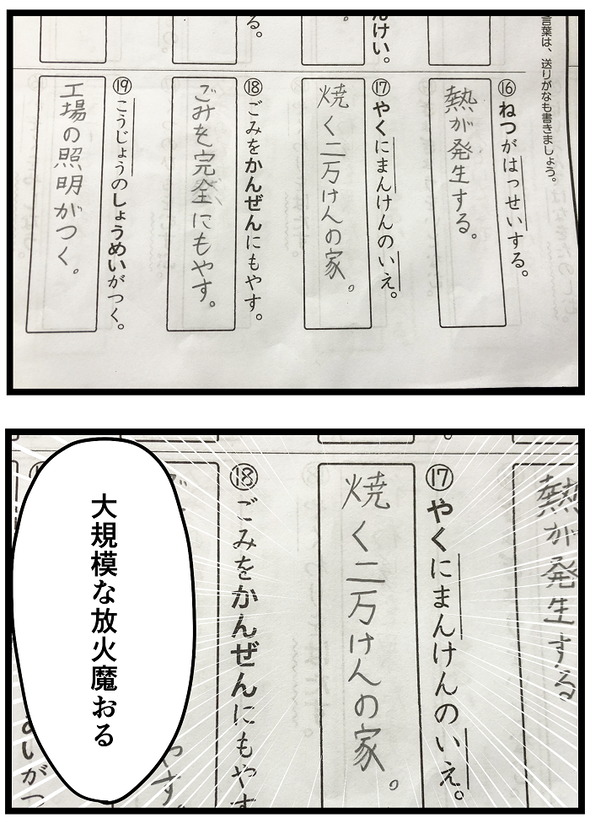 言葉は、送りがなも書きましょう。
んけい。
る。
⑯ねつがはっせいする。
熱が発生する。
⑰やくにまんけんのいえ。
焼く二万けんの家。
⑱ごみをかんぜんにもやす。
ごみを完全にもやす。
⑲こうじょうのしょうめいがつく。
工場の照明がつく。
熱が発生する
⑰やくにまんけんのいえ。
焼く二万けんの家。
⑱ごみをかんぜんにもやす
やす。
いがつ
大規模な放火魔おる